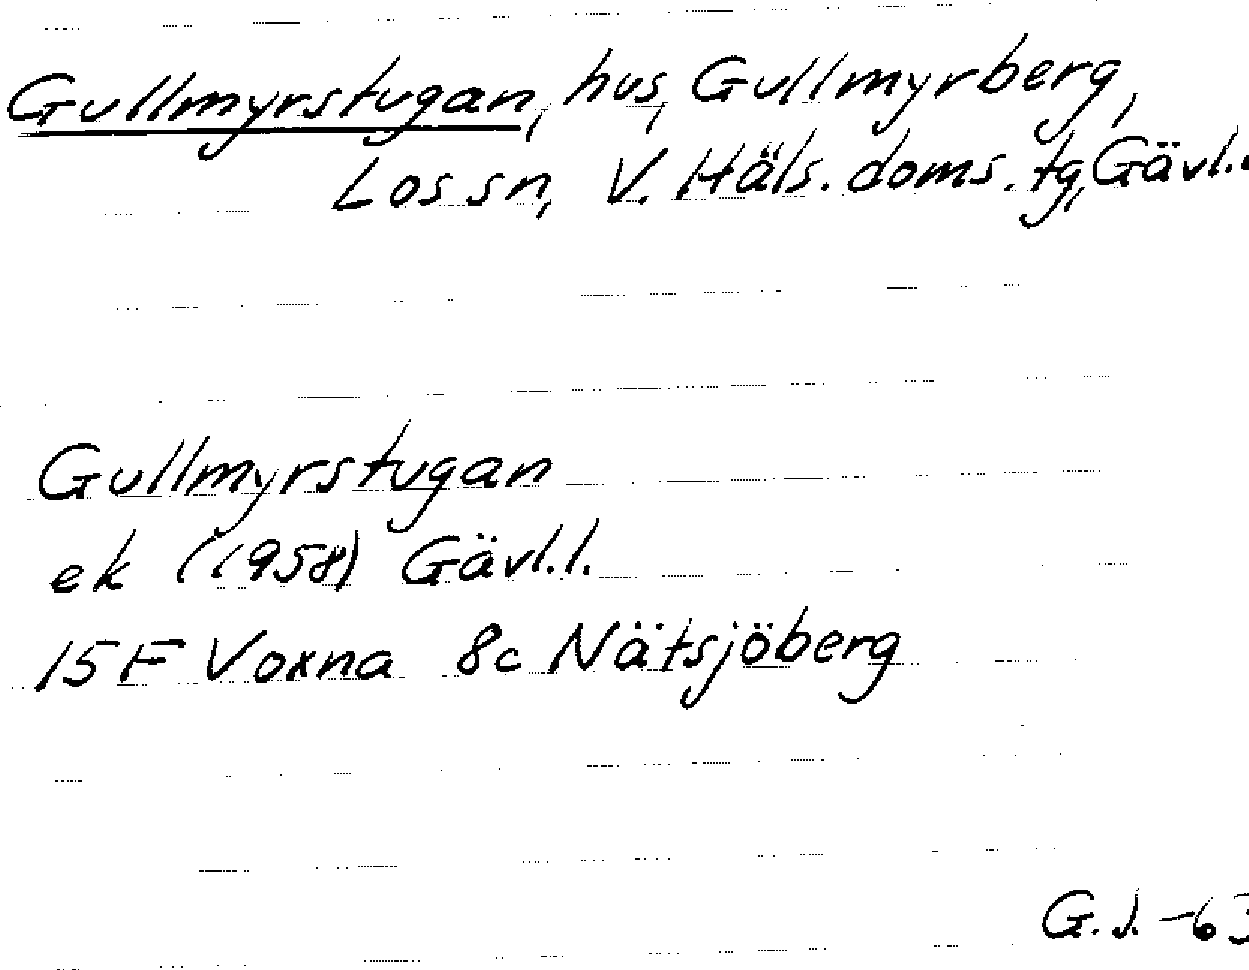 Gullmyrstugan, hus, Gullmyrberg,
Los sn, V. Häls. doms. tg, Gävl.l
Gullmyrstugan
ek (1958) Gävl.l.
15F Voxna 8c Nätsjöberg
G.J. -63